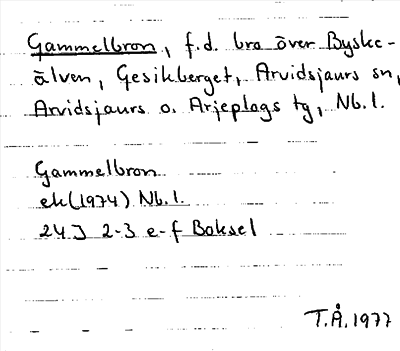 Gammelbron, f.d. bro över Byske-
älven, Gesikberget, Arvidsjaurs sn,
Arvidsjaurs o. Arjeplogs tg, Nb.l.
Gammelbron
ek(1974) Nb.l.
24J 2-3 e-f Boksel
T.Å. 1977